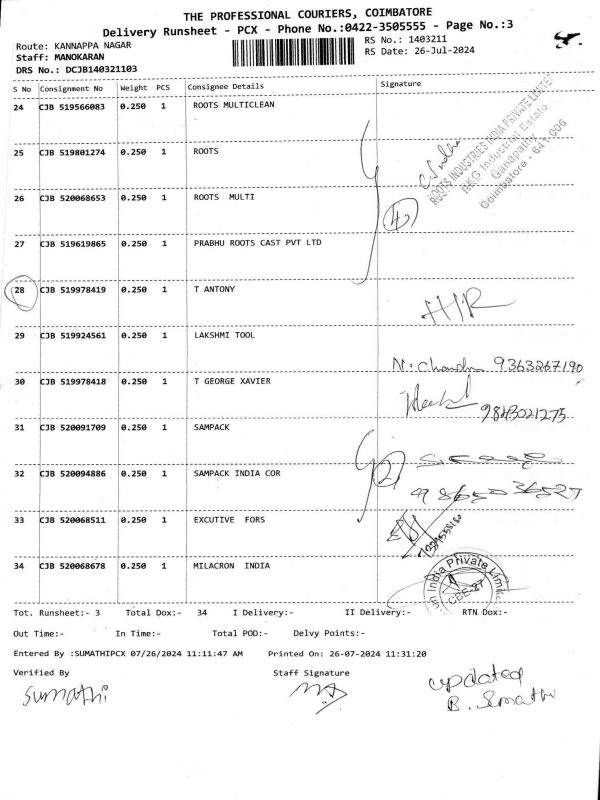 THE PROFESSIONAL COURIERS, COIMBATORE
Delivery Runsheet - PCX - Phone No.:0422-3505555 - Page No.:3
Route: KANNAPPA NAGAR RS No.: 1403211
Staff: MANOKARAN RS Date: 26-Jul-2024
DRS No.: DCJB140321103
S No Consignment No Weight PCS Consignee Details Signature
24 CJB 519566083 0.250 1 ROOTS MULTICLEAN
25 CJB 519801274 0.250 1 ROOTS
ROOTS INDUSTRIES INDIA PRIVATE LIMITED
RKG Industrial Estate
Ganapathy
Coimbatore - 641 006
26 CJB 520068653 0.250 1 ROOTS MULTI
4
27 CJB 519619865 0.250 1 PRABHU ROOTS CAST PVT LTD
28 CJB 519978419 0.250 1 T ANTONY
29 CJB 519924561 0.250 1 LAKSHMI TOOL
N. Chandra 9363267190
30 CJB 519978418 0.250 1 T GEORGE XAVIER
9843021275
31 CJB 520091709 0.250 1 SAMPACK
2
32 CJB 520094886 0.250 1 SAMPACK INDIA COR
33 CJB 520068511 0.250 1 EXCUTIVE FORS
34 CJB 520068678 0.250 1 MILACRON INDIA
India Private Limi
CBE-27
Tot. Runsheet:- 3 Total Dox:- 34 I Delivery:- II Delivery:- RTN Dox:-
Out Time:- In Time:- Total POD:- Delvy Points:-
Entered By :SUMATHIPCX 07/26/2024 11:11:47 AM Printed On: 26-07-2024 11:31:20
Verified By Staff Signature
sumathi
updated
B. Sumathi